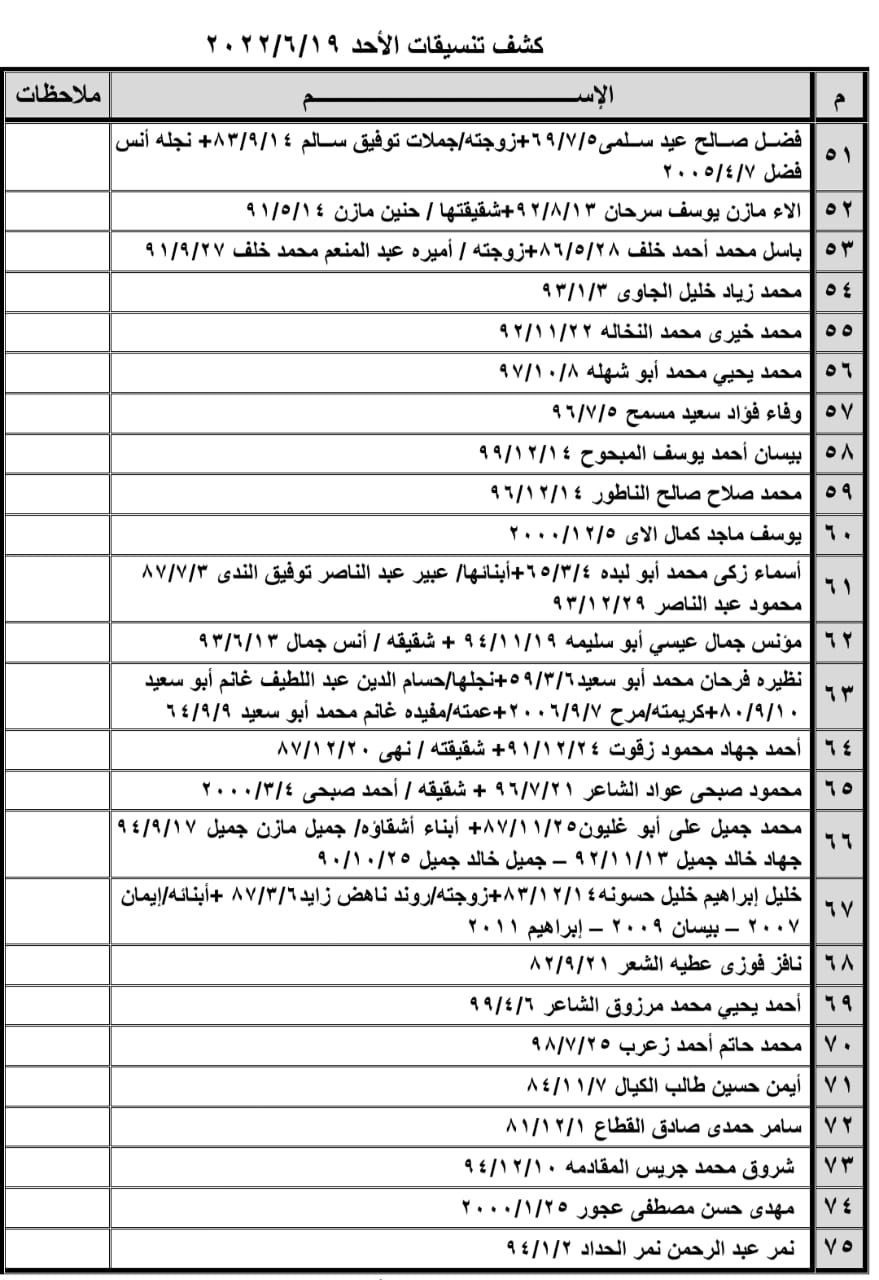 كشف تنسيقات الأحد ٢٠٢٢/٦/١٩
م الإســــــــم ملاحظات
٥١ فضل صالح عيد سلمى٦٩/٧/٥+زوجته/جملات توفيق سالم ٨٣/٩/١٤+ نجله أنس
فضل ٢٠٠٥/٤/٧
٥٢ الاء مازن يوسف سرحان ٩٢/٨/١٣+شقيقتها / حنين مازن ٩١/٥/١٤
٥٣ باسل محمد أحمد خلف ٨٦/٥/٢٨+زوجته / أميره عبد المنعم محمد خلف ٩١/٩/٢٧
٥٤ محمد زياد خليل الجاوى ٩٣/١/٣
٥٥ محمد خيرى محمد النخاله ٩٢/١١/٢٢
٥٦ محمد يحيي محمد أبو شهله ٩٧/١٠/٨
٥٧ وفاء فؤاد سعيد مسمح ٩٦/٧/٥
٥٨ بيسان أحمد يوسف المبحوح ٩٩/١٢/١٤
٥٩ محمد صلاح صالح الناطور ٩٦/١٢/١٤
٦٠ يوسف ماجد كمال الاى ٢٠٠٠/١٢/٥
٦١ أسماء زكى محمد أبو لبده ٦٥/٣/٤+أبنائها/ عبير عبد الناصر توفيق الندى ٨٧/٧/٣
محمود عبد الناصر ٩٣/١٢/٢٩
٦٢ مؤنس جمال عيسي أبو سليمه ٩٤/١١/١٩ + شقيقه / أنس جمال ٩٣/٦/١٣
٦٣ نظيره فرحان محمد أبو سعيد٥٩/٣/٦+نجلها/حسام الدين عبد اللطيف غانم أبو سعيد
٨٠/٩/١٠+كريمته/مرح ٢٠٠٦/٩/٧+عمته/مفيده غانم محمد أبو سعيد ٦٤/٩/٩
٦٤ أحمد جهاد محمود زقوت ٩١/١٢/٢٤+ شقيقته / نهى ٨٧/١٢/٢٠
٦٥ محمود صبحى عواد الشاعر ٩٦/٧/٢١ + شقيقه / أحمد صبحى ٢٠٠٠/٣/٤
٦٦ محمد جميل على أبو غليون٨٧/١١/٢٥+ أبناء أشقاؤه/ جميل مازن جميل ٩٤/٩/١٧
جهاد خالد جميل ٩٢/١١/١٣ – جميل خالد جميل ٩٠/١٠/٢٥
٦٧ خليل إبراهيم خليل حسونه٨٣/١٢/١٤+زوجته/روند ناهض زايد٨٧/٣/٦ +أبنائه/إيمان
٢٠٠٧ – بيسان ٢٠٠٩ – إبراهيم ٢٠١١
٦٨ نافز فوزى عطيه الشعر ٨٢/٩/٢١
٦٩ أحمد يحيي محمد مرزوق الشاعر ٩٩/٤/٦
٧٠ محمد حاتم أحمد زعرب ٩٨/٧/٢٥
٧١ أيمن حسين طالب الكيال ٨٤/١١/٧
٧٢ سامر حمدى صادق القطاع ٨١/١٢/١
٧٣ شروق محمد جريس المقادمه ٩٤/١٢/١٠
٧٤ مهدى حسن مصطفى عجور ٢٠٠٠/١/٢٥
٧٥ نمر عبد الرحمن نمر الحداد ٩٤/١/٢